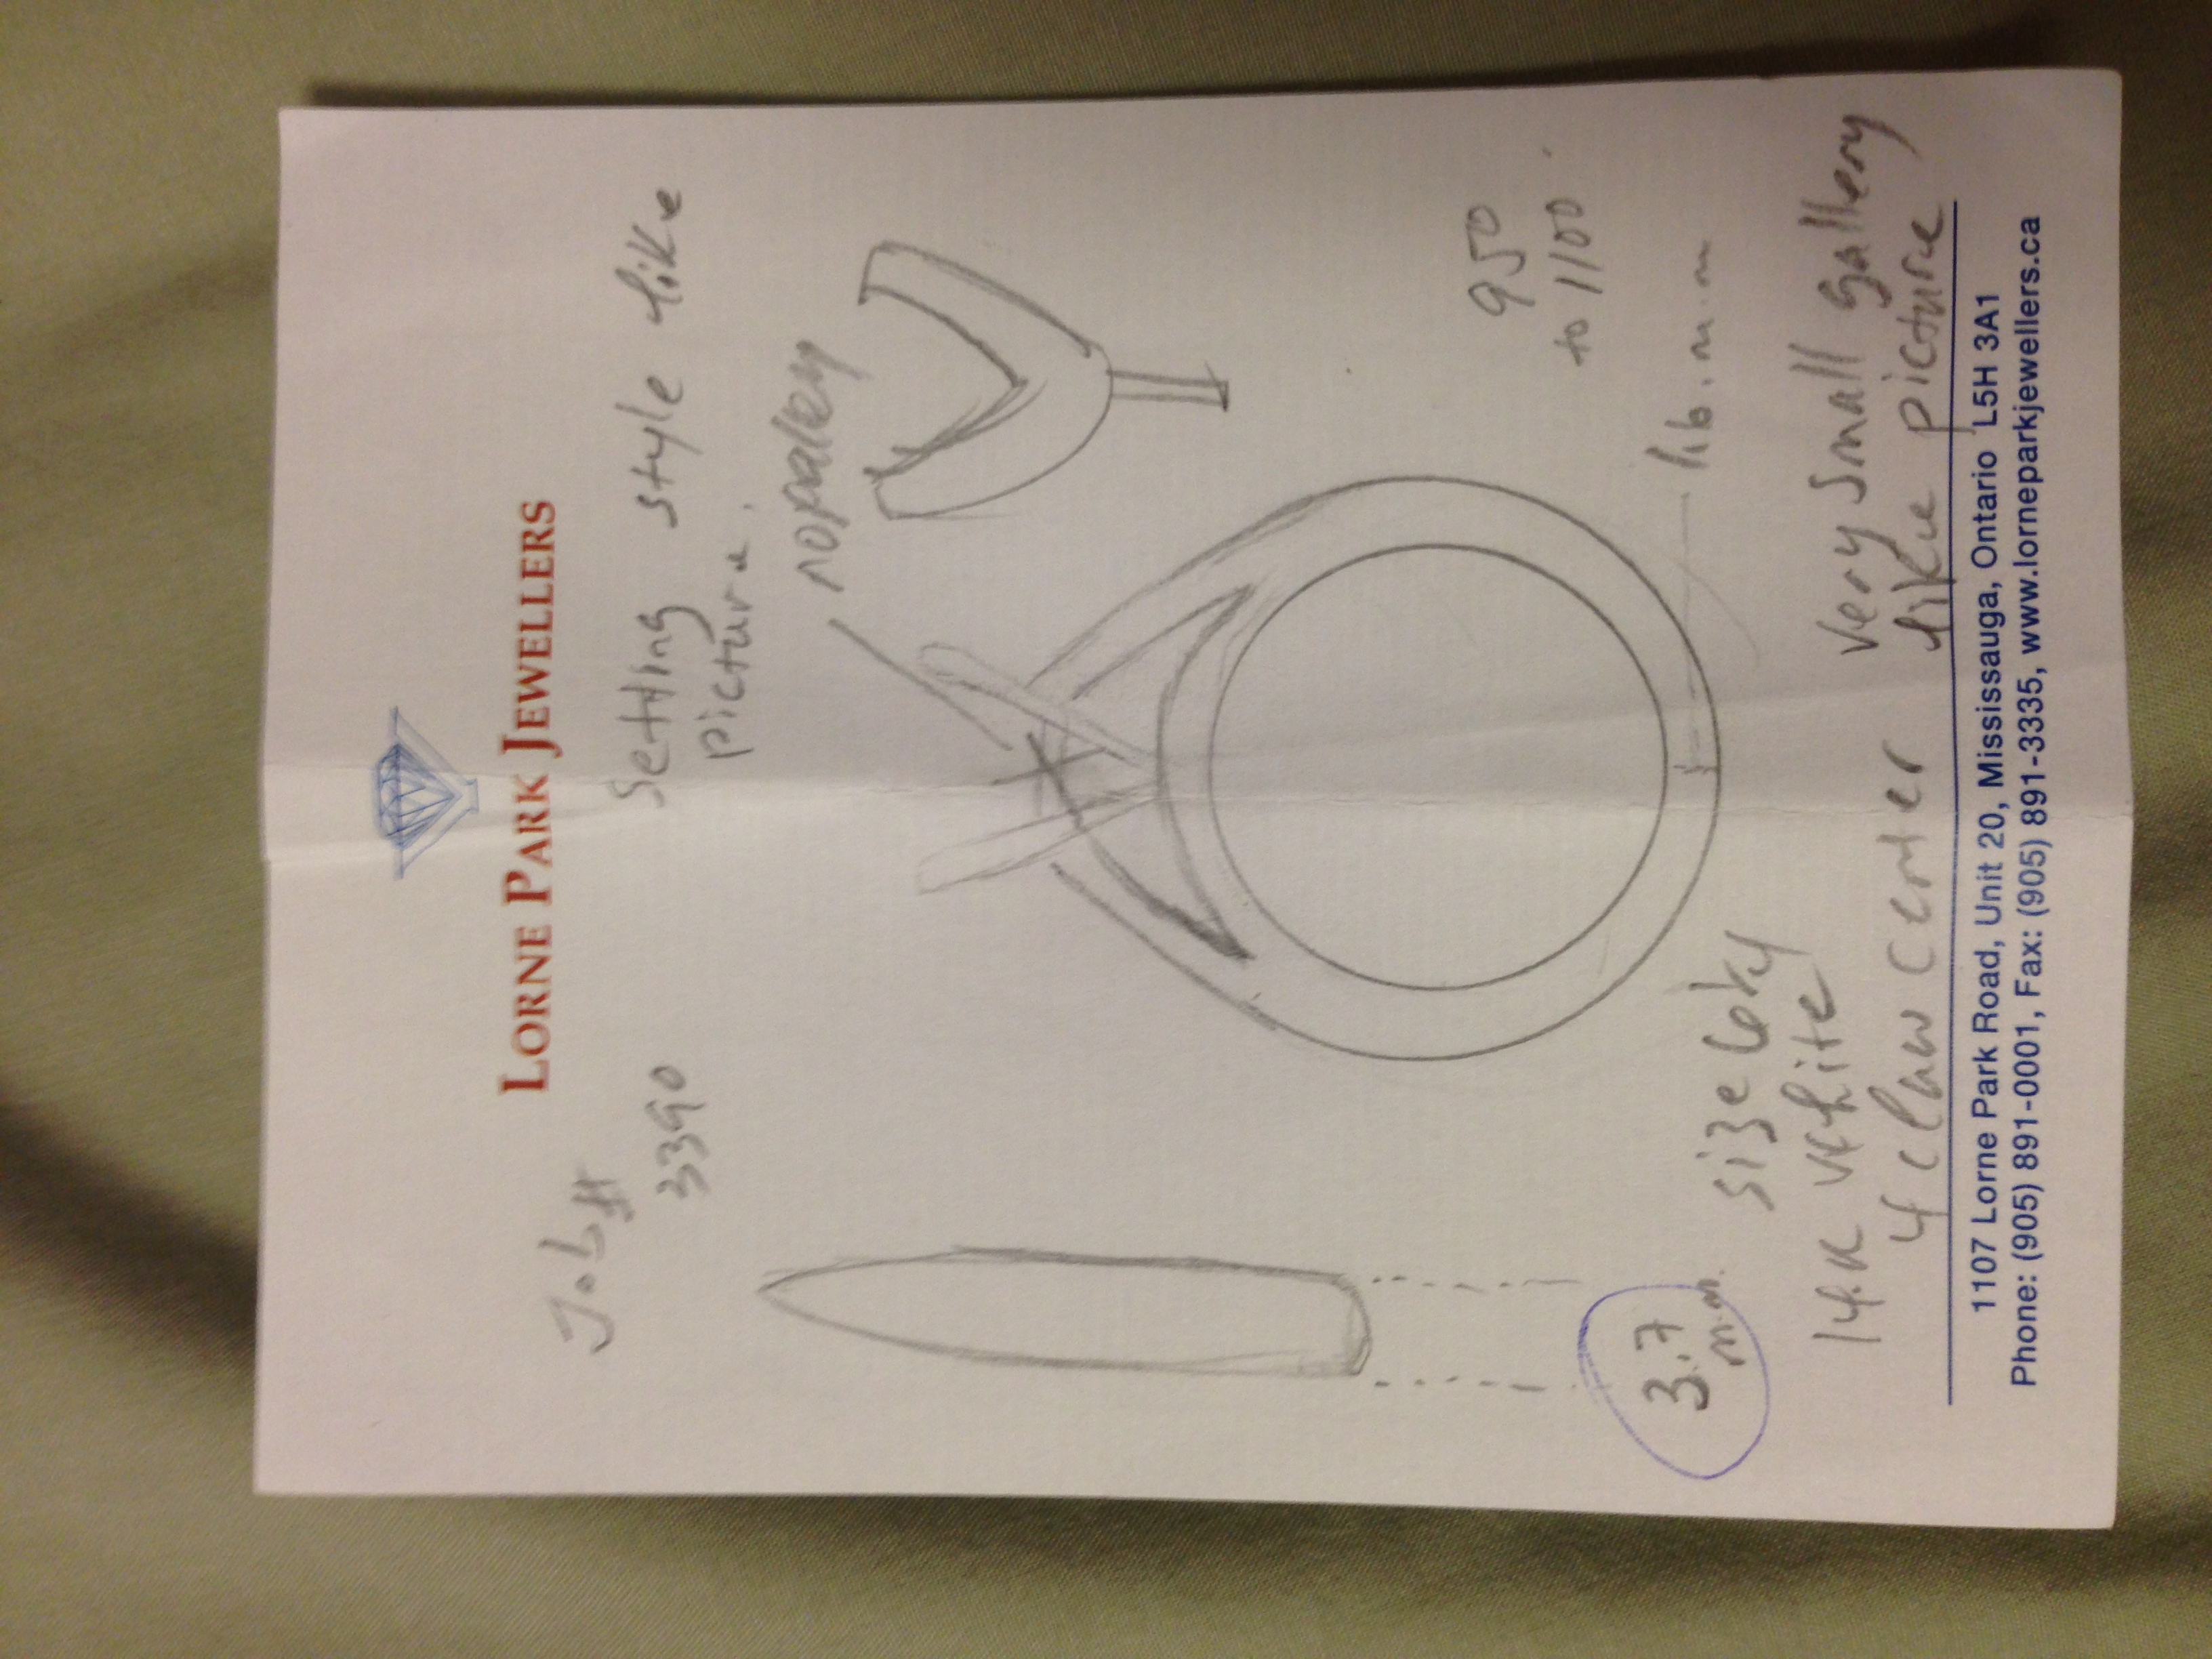 LORNE PARK JEWELLERS
Job #
3390
Setting style like
picture.
no gallery
950
to 1100
3.7
m.m.
1.6.m.m
size 6 1/4
14.K White
4 claw center
very small gallery
like picture
1107 Lorne Park Road, Unit 20, Mississauga, Ontario L5H 3A1
Phone: (905) 891-0001, Fax: (905) 891-3335, www.lorneparkjewellers.ca